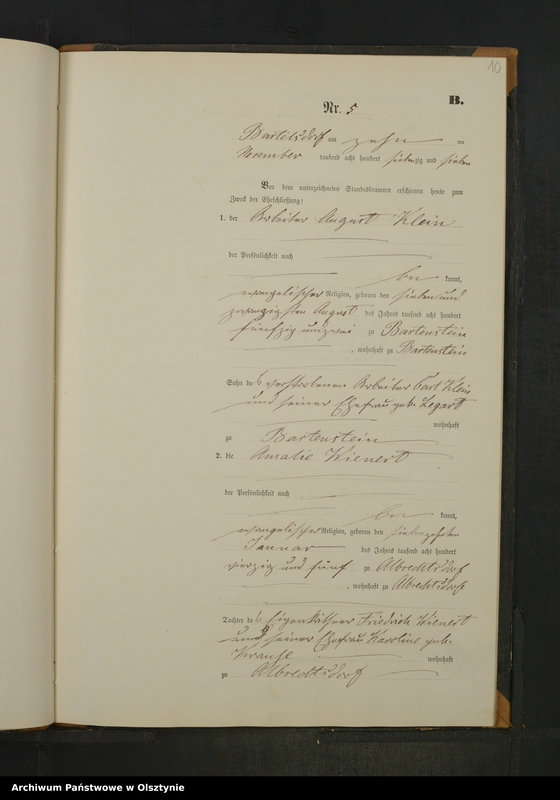 10
B.
Nr. 5
Bartelsdorf am zehn ten
November tausend acht hundert siebenzig und sieben
Vor dem unterzeichneten Standesbeamten erschienen heute zum
Zweck der Eheschließung:
1. der Arbeiter August Klein
der Persönlichkeit nach
be kannt,
evangelischer Religion, geboren den sieben und
zwanzigsten August des Jahres tausend acht hundert
fünfzig und zwei zu Bartenstein
, wohnhaft zu Bartenstein
Sohn des verstorbenen Arbeiter Carl Klein
und seiner Ehefrau geb. Legart
wohnhaft
zu Bartenstein
2. die Amalie Wienert
der Persönlichkeit nach
be kannt,
evangelischer Religion, geboren den siebenzehnten
Januar des Jahres tausend acht hundert
vierzig und fünf zu Albrechtsdorf
, wohnhaft zu Albrechtsdorf
Tochter des Eigenkäthner Friedrich Wienert
und seiner Ehefrau Karoline geb.
Krause wohnhaft
zu Albrechtsdorf
Archiwum Państwowe w Olsztynie